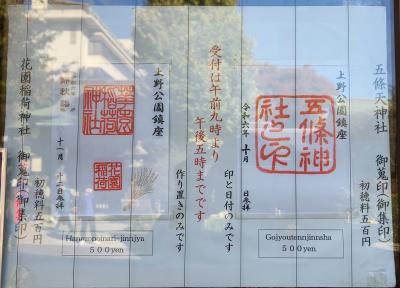 五條天神社　御蒐印（御集印）
初穂料五百円
上野公園鎮座
五條神社之印
令和六年 十月 日参拝
Gojyoutennjinnsha
５００yen
印と日付のみです
受付は午前九時より
午後五時までです
作り置きのみです
上野公園鎮座
花園稲荷神社
花園稲荷
十一月 十二日参拝
Hanazonoinari-jinnjya
５００yen
花園稲荷神社　御蒐印（御集印）
初穂料五百円